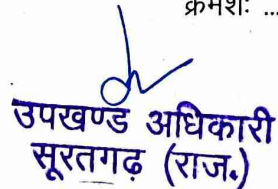 क्रमशः ...
उपखण्ड अधिकारी
सूरतगढ़ (राज.)